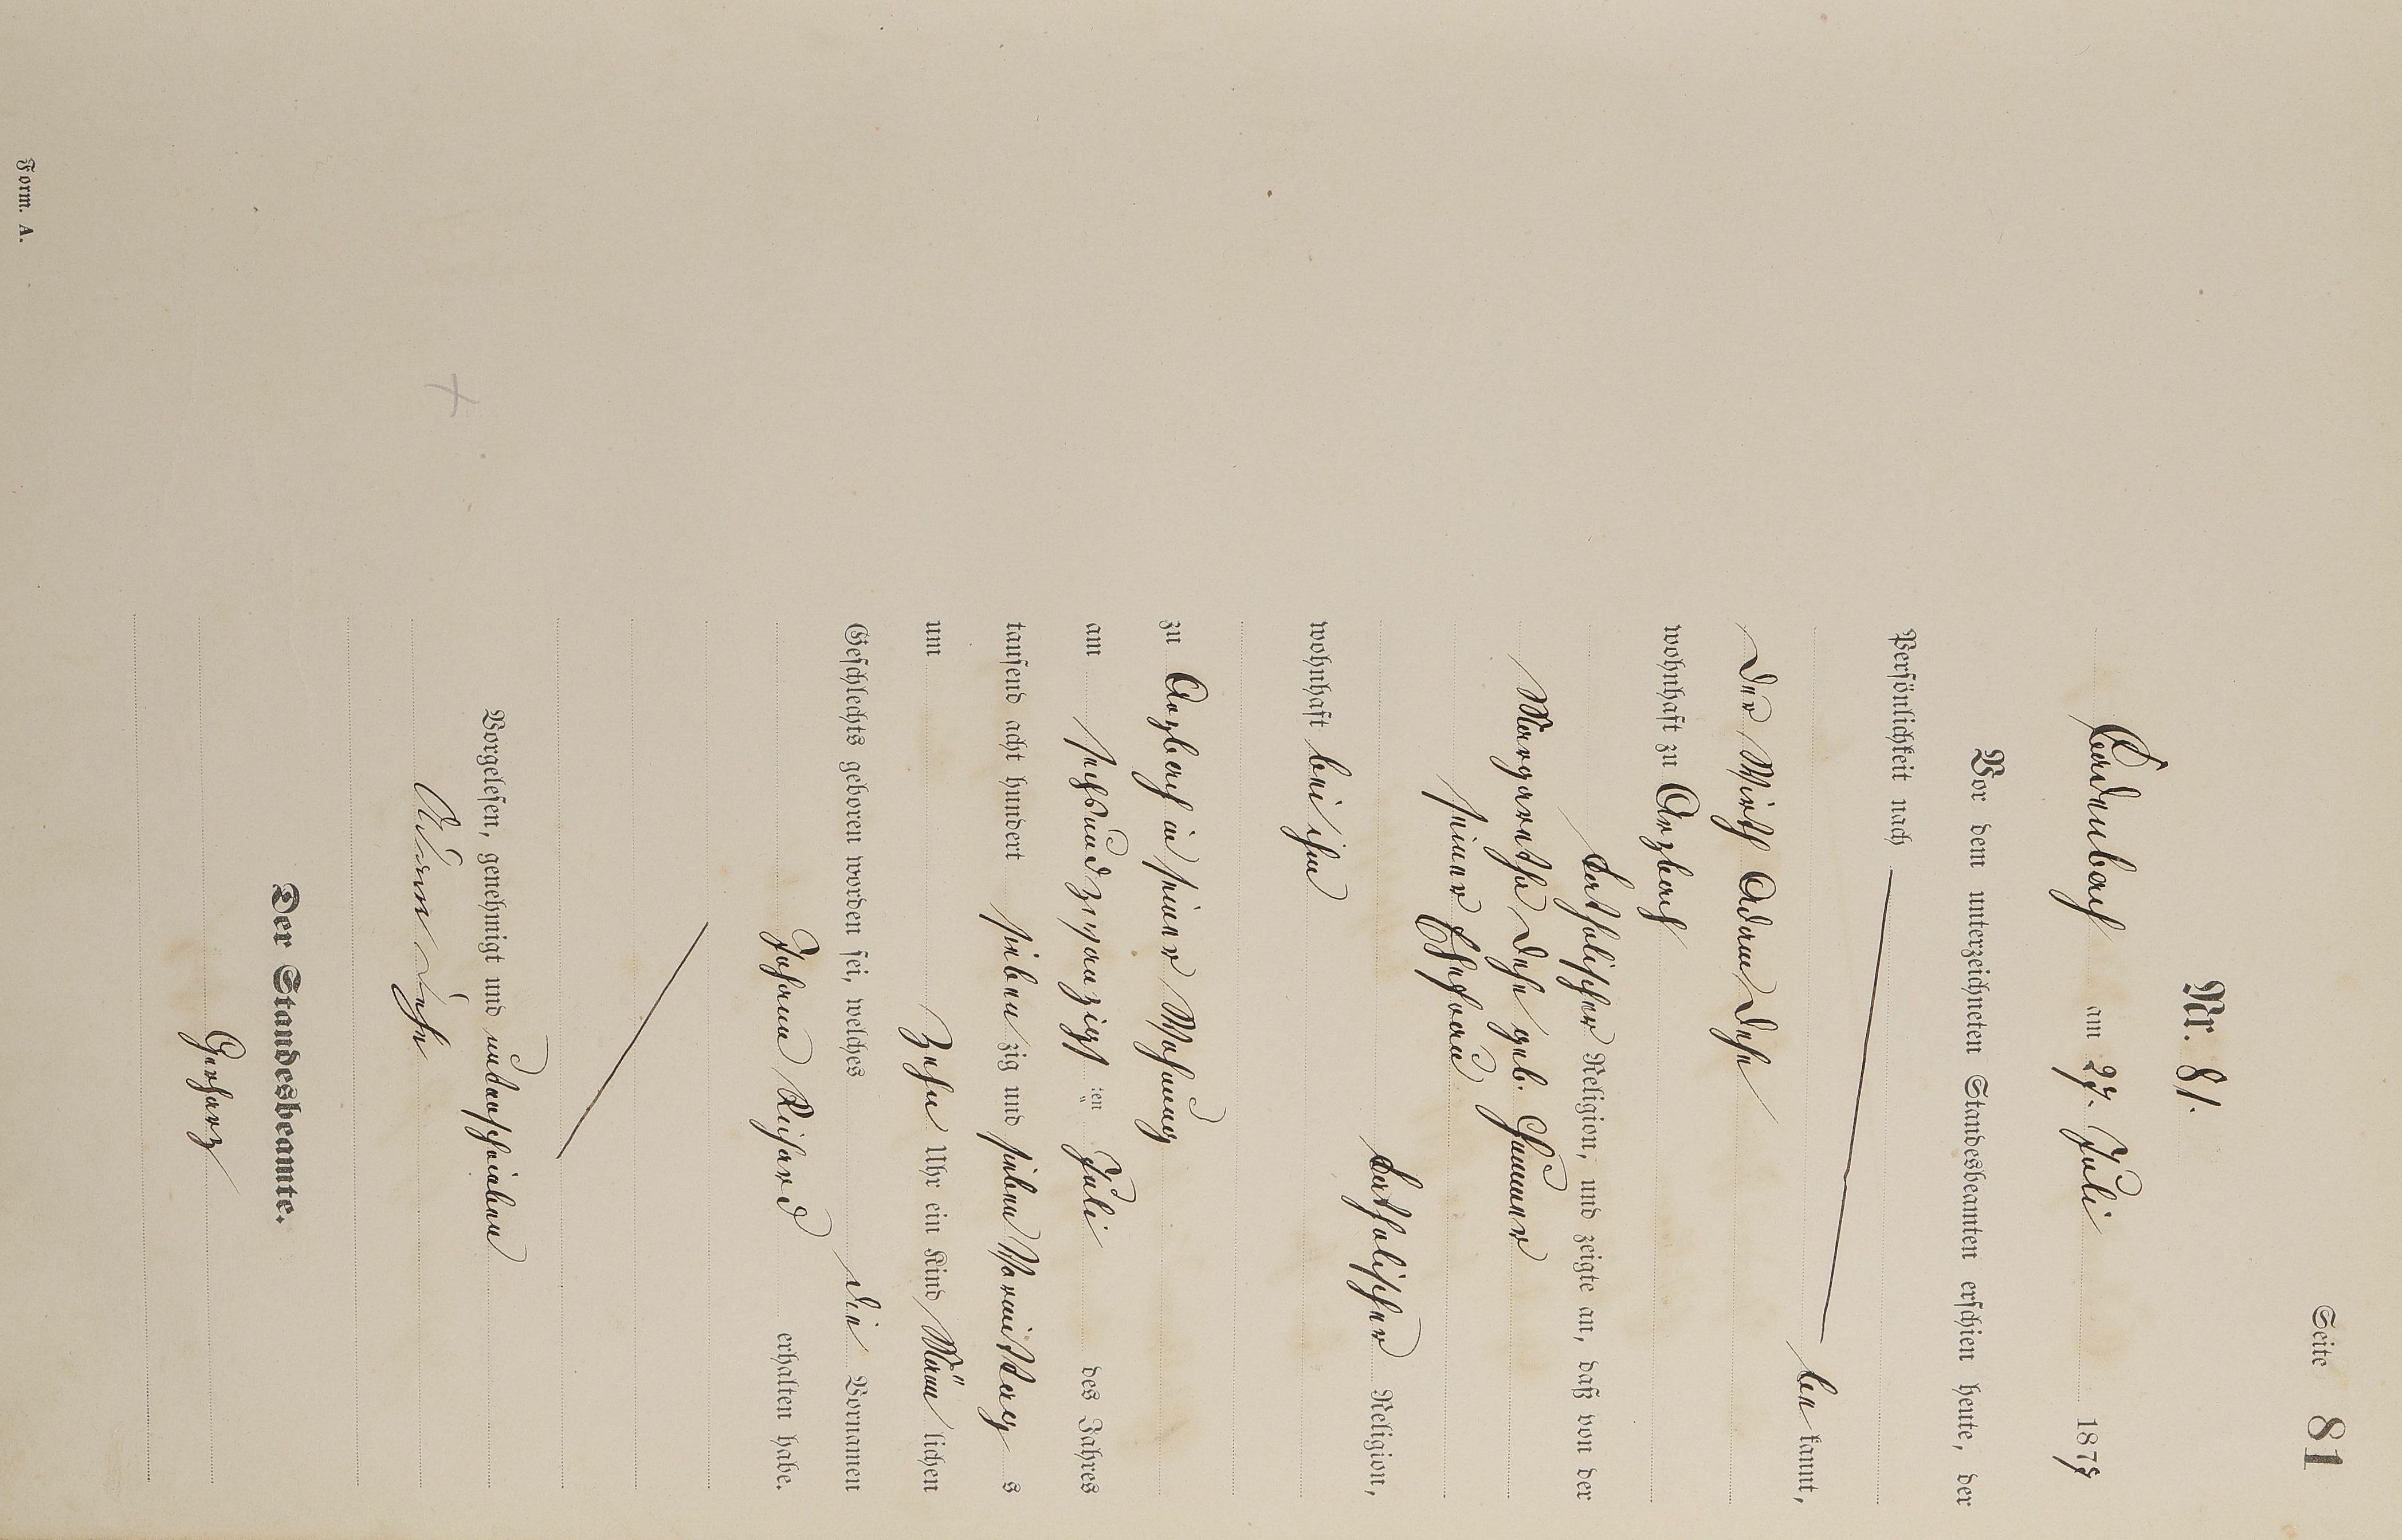 Seite 81
Nr. 81.
Cadenbach am 27. Juli 1877
Vor dem unterzeichneten Standesbeamten erschien heute, der
Persönlichkeit nach
be kannt,
der Wirth Adam Dehe
wohnhaft zu Arzbach
katholischer Religion, und zeigte an, daß von der
Margaretha Dehe geb.
seiner Ehefrau
katholischer Religion,
wohnhaft bei ihm
zu Arzbach in seiner Wohnung
am sechsundzwanzigsten Juli des Jahres
tausend acht hundert sieben zig und sieben Vormittag s
um Zehn Uhr ein Kind Männ lichen
Geschlechts geboren worden sei, welches die Vornamen
Johann Richard erhalten habe.
Vorgelesen, genehmigt und unterschrieben
Adam Dehe
Der Standesbeamte.
Gerharz
Form. A.